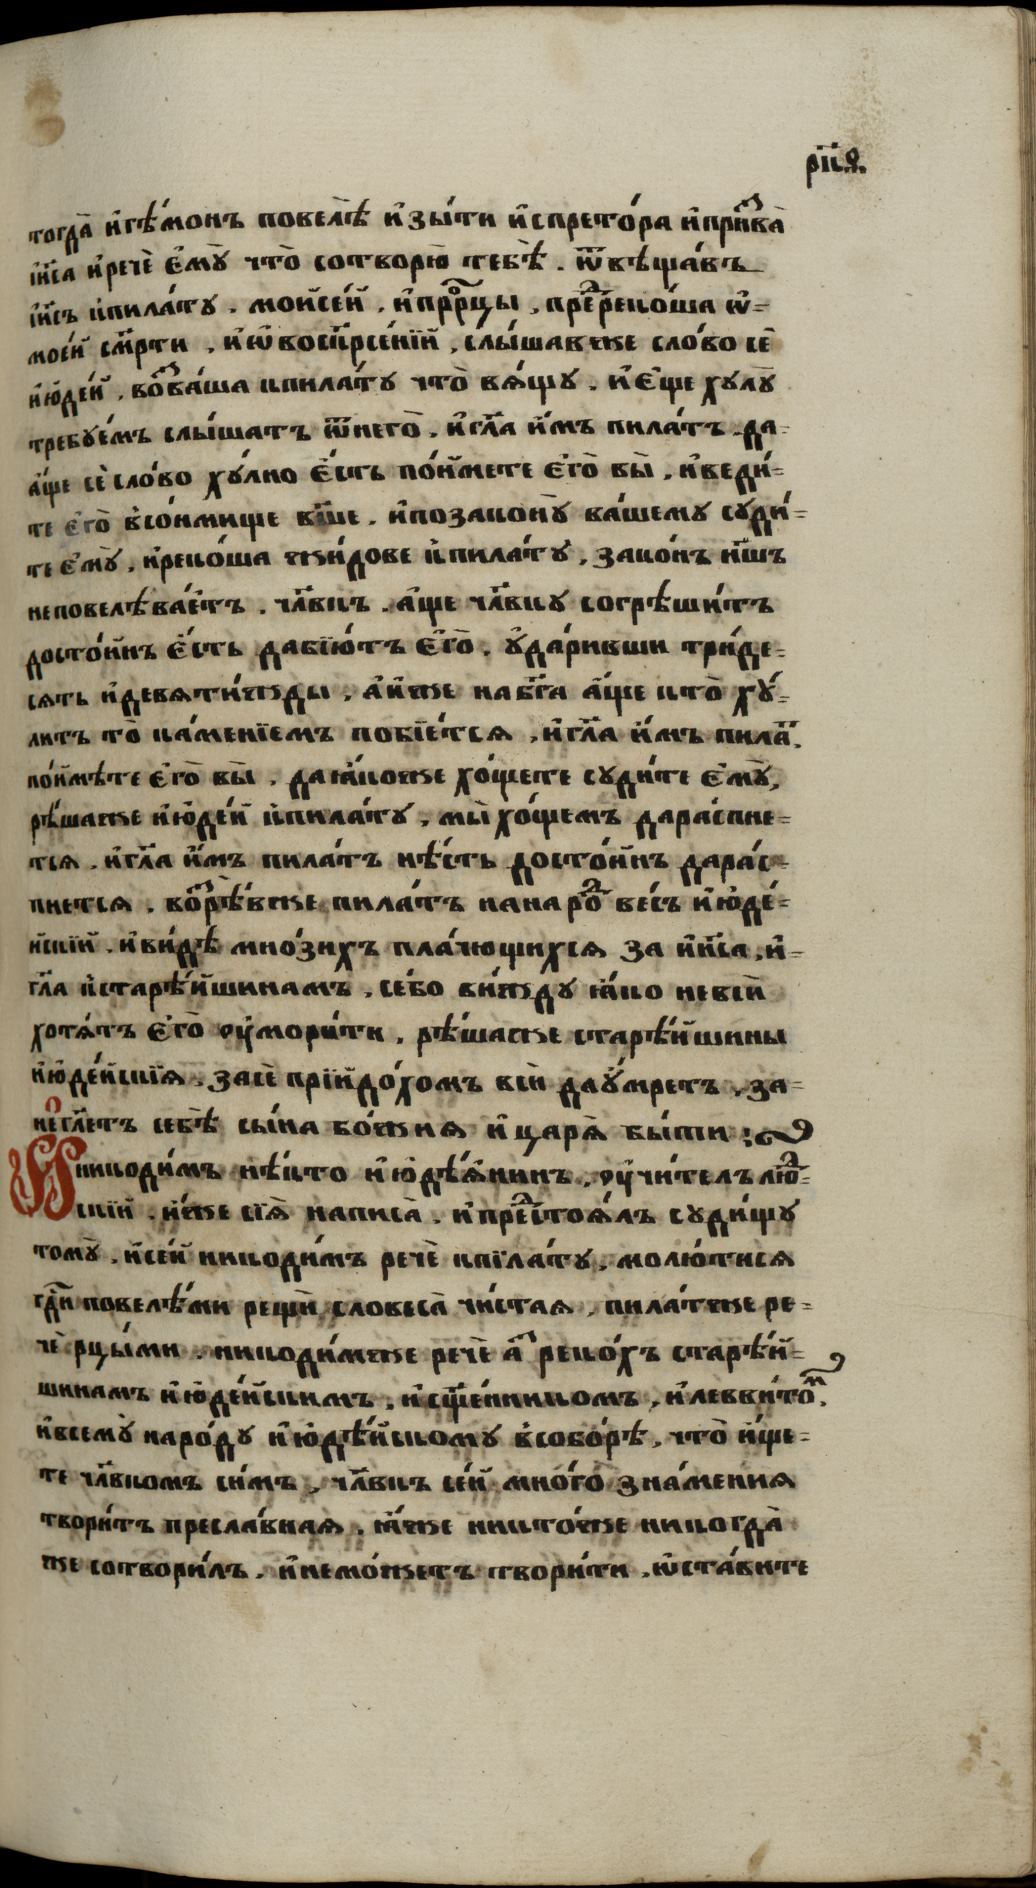 рп҃ѳ.
тогда̀ и҆гѣ́монъ повелѣ̀ и҆зы́ти и҆спрето́ра и҆при́зва̀
і҆и҃са и҆речѐ є҆мꙋ̀ что̀ сотворю̀ тебѣ̀ . ѿвѣща́въ
і҆и҃съ кпила́тꙋ . мои҆се́й , и҆прⷪ҇рцы , преⷣреко́ша ѡ҆-
мое́й см҃рти , и҆ѡ҆воскр҃се́нїй , слы́шавже сло́во сѐ
и҆ю҆де́й , возва́ша кпила́тꙋ что̀ вѧ́щꙋ . и҆є҆ще хꙋлꙋ̀
требꙋ́емъ слы́шатъ ѿнего̀ . и҆гл҃а и҆́мъ пила́тъ . да-
а҆́ще сѐ сло́во хꙋ́лно є҆́сть по́ймете є҆го̀ вы̀ , и҆веди́-
те є҆го̀ всо́нмище ва́ше . и҆позако́нꙋ ва́шемꙋ сꙋди́-
те є҆мꙋ̀ . и҆реко́ша жи́дове кпила́тꙋ , зако́нъ на́шъ
неповелѣва́етъ . чл҃вкъ . а҆́ще чл҃вкꙋ согрѣши́тъ
досто́инъ є҆́сть дабїю́тъ є҆го̀ . ꙋ҆да́ривши три́де-
сѧть и҆девѧти́жды , а҆и҆́же наб҃га а҆́ще кто̀ хꙋ́-
литъ то̀ ка́менїемъ побїе́тсѧ , и҆гл҃а и҆́мъ пилаⷮ .
пои҆мѣ́те є҆го̀ вы̀ . даꙗ҆́коже хо́щете сꙋди́те є҆мꙋ̀ ,
рѣ́шаже и҆ю҆де́й кпила́тꙋ , мы̀ хо́щемъ дара́спне-
тсѧ . и҆гл҃а и҆́мъ пила́тъ нѣ́сть досто́инъ дара́с-
пнетсѧ . возрѣ́вже пила́тъ нанароⷣ ве́съ и҆ю҆де́-
йскїй . и҆ви́дѣ мно́зихъ пла́чющихсѧ за и҆и҃са , и҆-
гл҃а кстарѣ́йшинамъ , се́бо ви́ждꙋ ꙗ҆́ко невсѝ
хотѧ́тъ є҆го̀ оу҆мори́ти , рѣ́шаже старѣ́йшины
и҆ю҆де́йскїѧ , засѐ прїйдо́хомъ всѝ даꙋ҆́мретъ , за-
неⷤ гл҃етъ себѣ̀ сы́на бо́жиѧ и҆ царѧ̀ бы́ти :
Никоди́мъ нѣ́кто и҆ю҆дѣ́ѧнинъ , оу҆чи́телъ люⷣ-
скїй , и҆́же сїѧ̀ написа̀ . и҆преⷣстоѧ́лъ сꙋди́щꙋ
томꙋ̀ , и҆се́й никоди́мъ речѐ кпїла́тꙋ , молю́тисѧ
гдⷭ҇и повелѣ́ми рещѝ словеса̀ чи́стаѧ , пила́тже ре-
чѐ рцы́ми . никоди́мже речѐ а҆́зъ реко́хъ старѣ́й-
шинамъ и҆ю҆де́йскимъ , и҆сщ҃е́нникомъ , и҆левви́тоⷨ .
и҆всемꙋ̀ наро́дꙋ и҆ю҆дѣ́йскомꙋ всобо́рѣ , что̀ и҆́ще-
те чл҃вкомъ си́мъ , чл҃вкъ се́й мно́го зна́мениѧ
твори́тъ пресла́внаѧ . ꙗ҆́же никто́же никогда̀
же сотвори́лъ . и҆немо́жетъ твори́ти , ѡ҆ста́вите